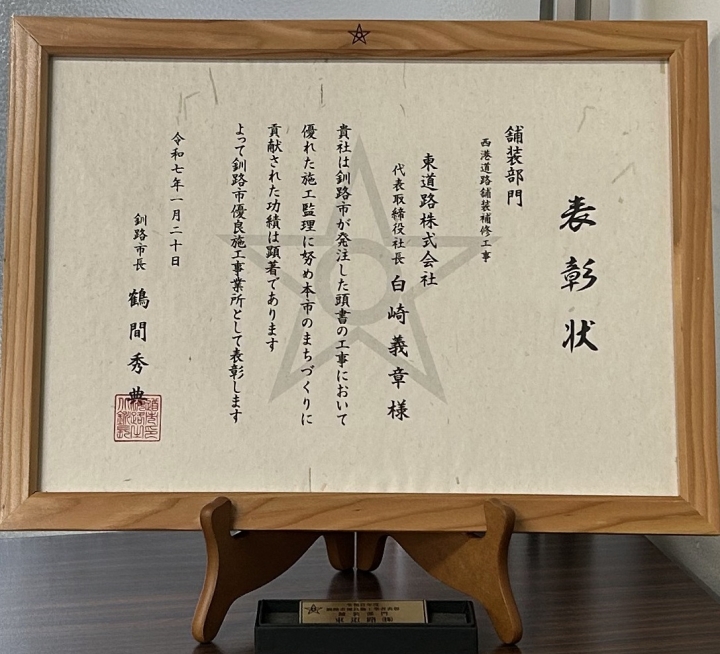 表彰状
舗装部門
西港道路舗装補修工事
東道路株式会社
代表取締役社長 白崎義章 様
貴社は釧路市が発注した頭書の工事において
優れた施工監理に努め本市のまちづくりに
貢献された功績は顕著であります
よって釧路市優良施工事業所として表彰します
令和七年一月二十日
釧路市長 鶴間秀典
舗装部門
東道路㈱